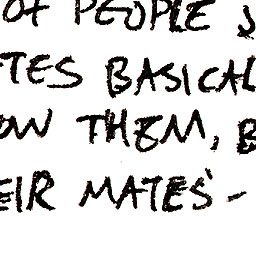 OF PEOPLE
TES BASICAL
OW THEM, B
EIR MATES' -